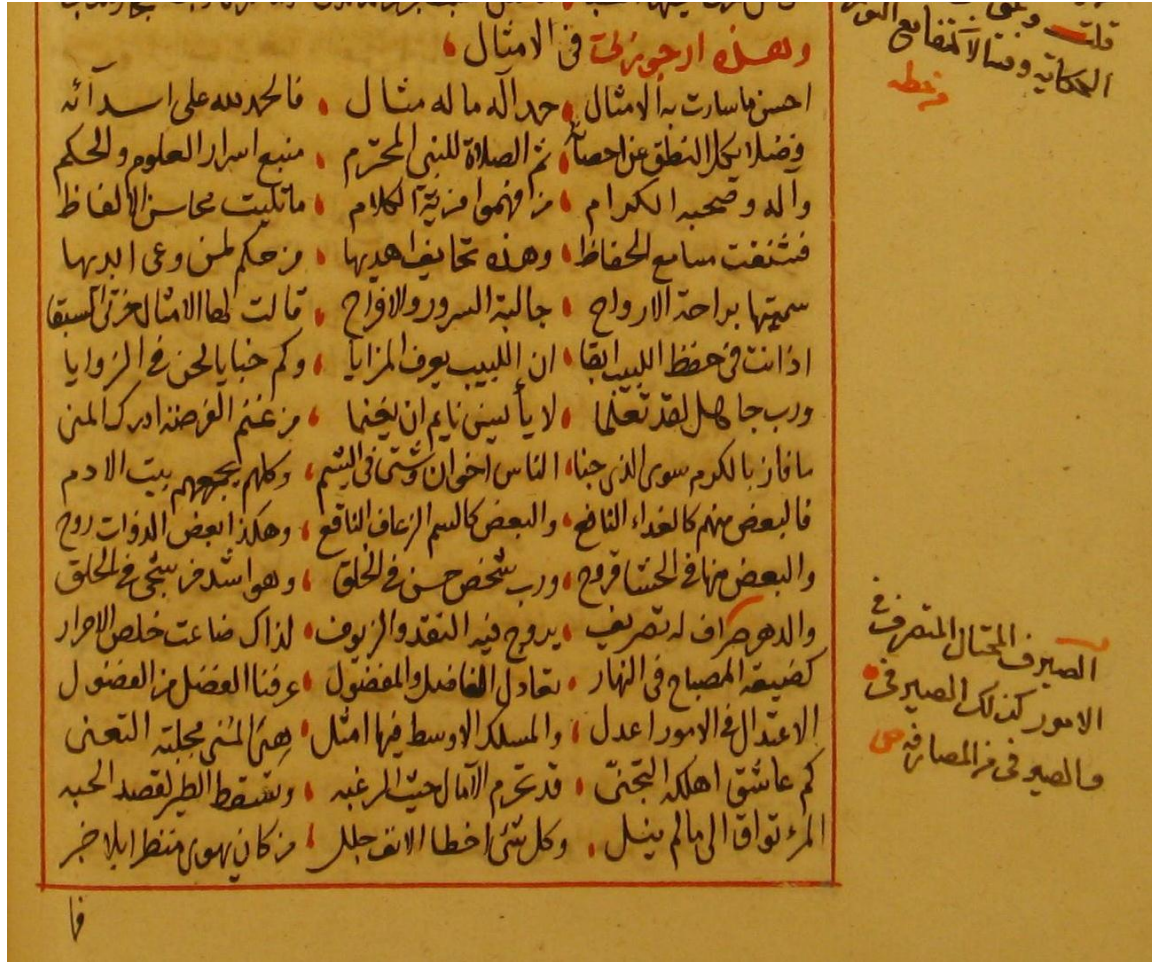 وهذه ارجوزتي في الامثال
احسن ما سارت به الامثال ، حمد اله ما له مثال ، فالحمد لله على اسدآئه
فضلا يكل النطق عن احصائه ، ثم الصلاة للنبي المحترم ، منبع اسرار العلوم والحكم
وآله وصحبه الكرام ، من فهموا مزية الكلام ، ما تليت محاسن الالفاظ
فشنفت مسامع الحفاظ ، وهذه تحايف اهديها ، من حكم لمن وعى ابديها
سميتها براحة الارواح ، جالبة السرور والافراح ، قالت لها الامثال حزتي السبقا
اذ انت في حفظ اللبيب ابقا ، ان اللبيب يعرف المزايا ، وكم خبايا لحن في الزوايا
ورب جاهل لقد تعلما ، لا ييأسن نايم ان يغنما ، من غنم الفرصة ادرك المنى
ما فاز بالكرم سوى الذي جنا ، الناس اخوان وشتى في الشيم ، وكلهم يجمعهم بيت الادم
فالبعض منهم كالغداء النافع ، والبعض كالسم الزعاف الناقع ، وهكذا بعض الذوات روح
والبعض منها في الحشا قروح ، ورب شخص حسن في الخلق ، وهو اشد من شجى في الحلق
والدهر صراف له تصريف ، يروج فيه النقد والزيوف ، لذاك ضاعت خلص الاحرار
كضيعة المصباح في النهار ، تعادل الفاضل والمفضول ، عرفنا الفضل من الفضول
الاعتدال في الامور اعدل ، والمسلك الاوسط فيها امثل ، هي المنى مجلبة التعنى
كم عاشق اهلكه التجنى ، قد تحرم الآمال حيث الرغبه ، وتسقط الطير لقصد الحبه
المرء تواق الى ما لم ينل ، وكل شيء اخطا الانف جلل ، من كان يهوى منظرا بلا خبر
فا
قلت
الحكاية ومنا
من خطه
الصيرف المحتال المتصرف في
الامور كذلك الصيرفى
والصيرفى من المصارفة ص